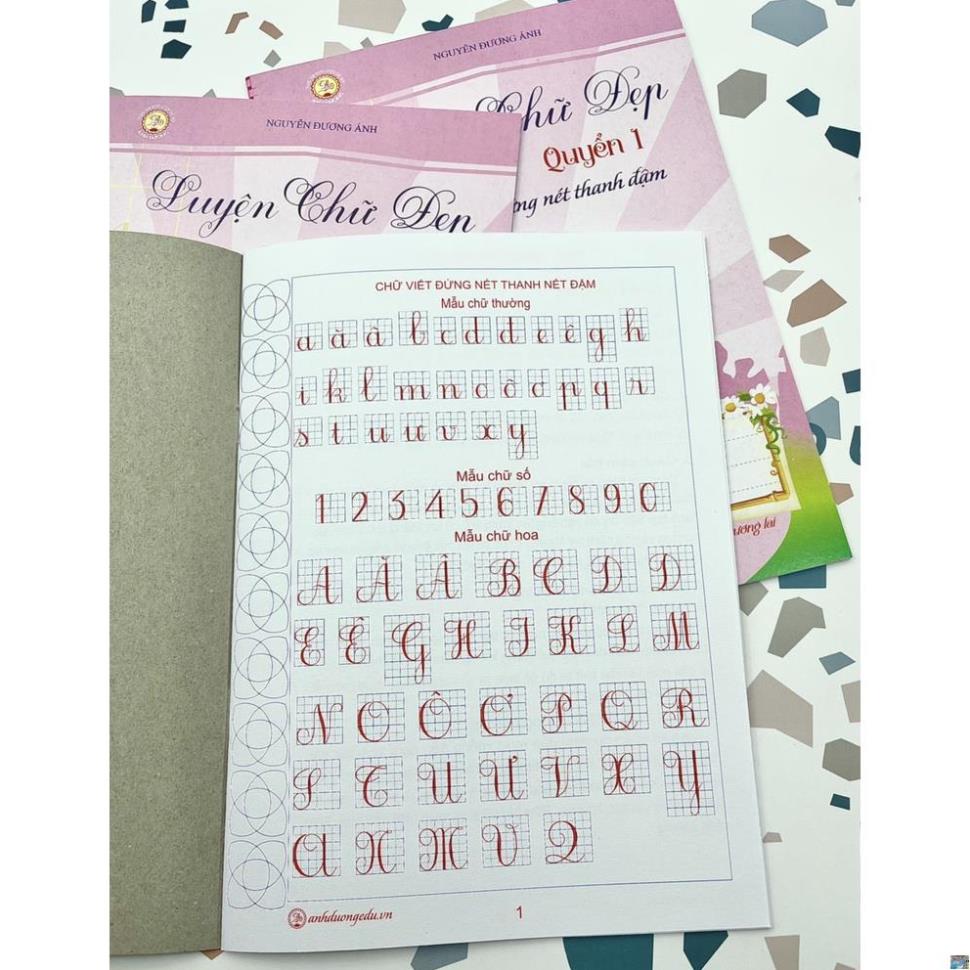 NGUYỄN ĐƯƠNG ÁNH
Chữ Đẹp
Quyển 1
nét thanh đậm
NGUYỄN ĐƯƠNG ÁNH
Luyện Chữ Đẹp
CHỮ VIẾT ĐỨNG NÉT THANH NÉT ĐẬM
Mẫu chữ thường
a ă â b c d đ e ê g h
i k l m n o ô ơ p q r
s t u ư v x y
Mẫu chữ số
1 2 3 4 5 6 7 8 9 0
Mẫu chữ hoa
A Ă Â B C D Đ
E Ê G H I K L M
N O Ô Ơ P Q R
S T U Ư V X Y
A N M V Q
anhduongedu.vn
1
lai